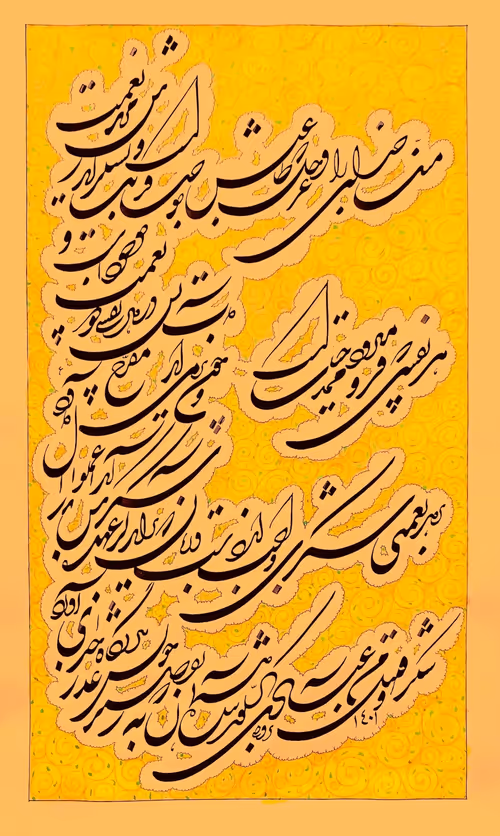 منت خدایرا عز و جل که طاعتش موجب قربتست و بشکر اندرش مزید نعمت
هر نفسی که فرو میرود ممد حیاتست و چون برمی آید مفرح ذات پس در هر نفسی دو نعمت موجودست و
بر هر نعمتی شکری واجب از دست و زبان که برآید کز عهده شکرش بدر آید اعملوا آل داود
شکرا و قلیل من عبادی الشکور بنده همان به که ز تقصیر خویش عذر بدرگاه خدای آورد